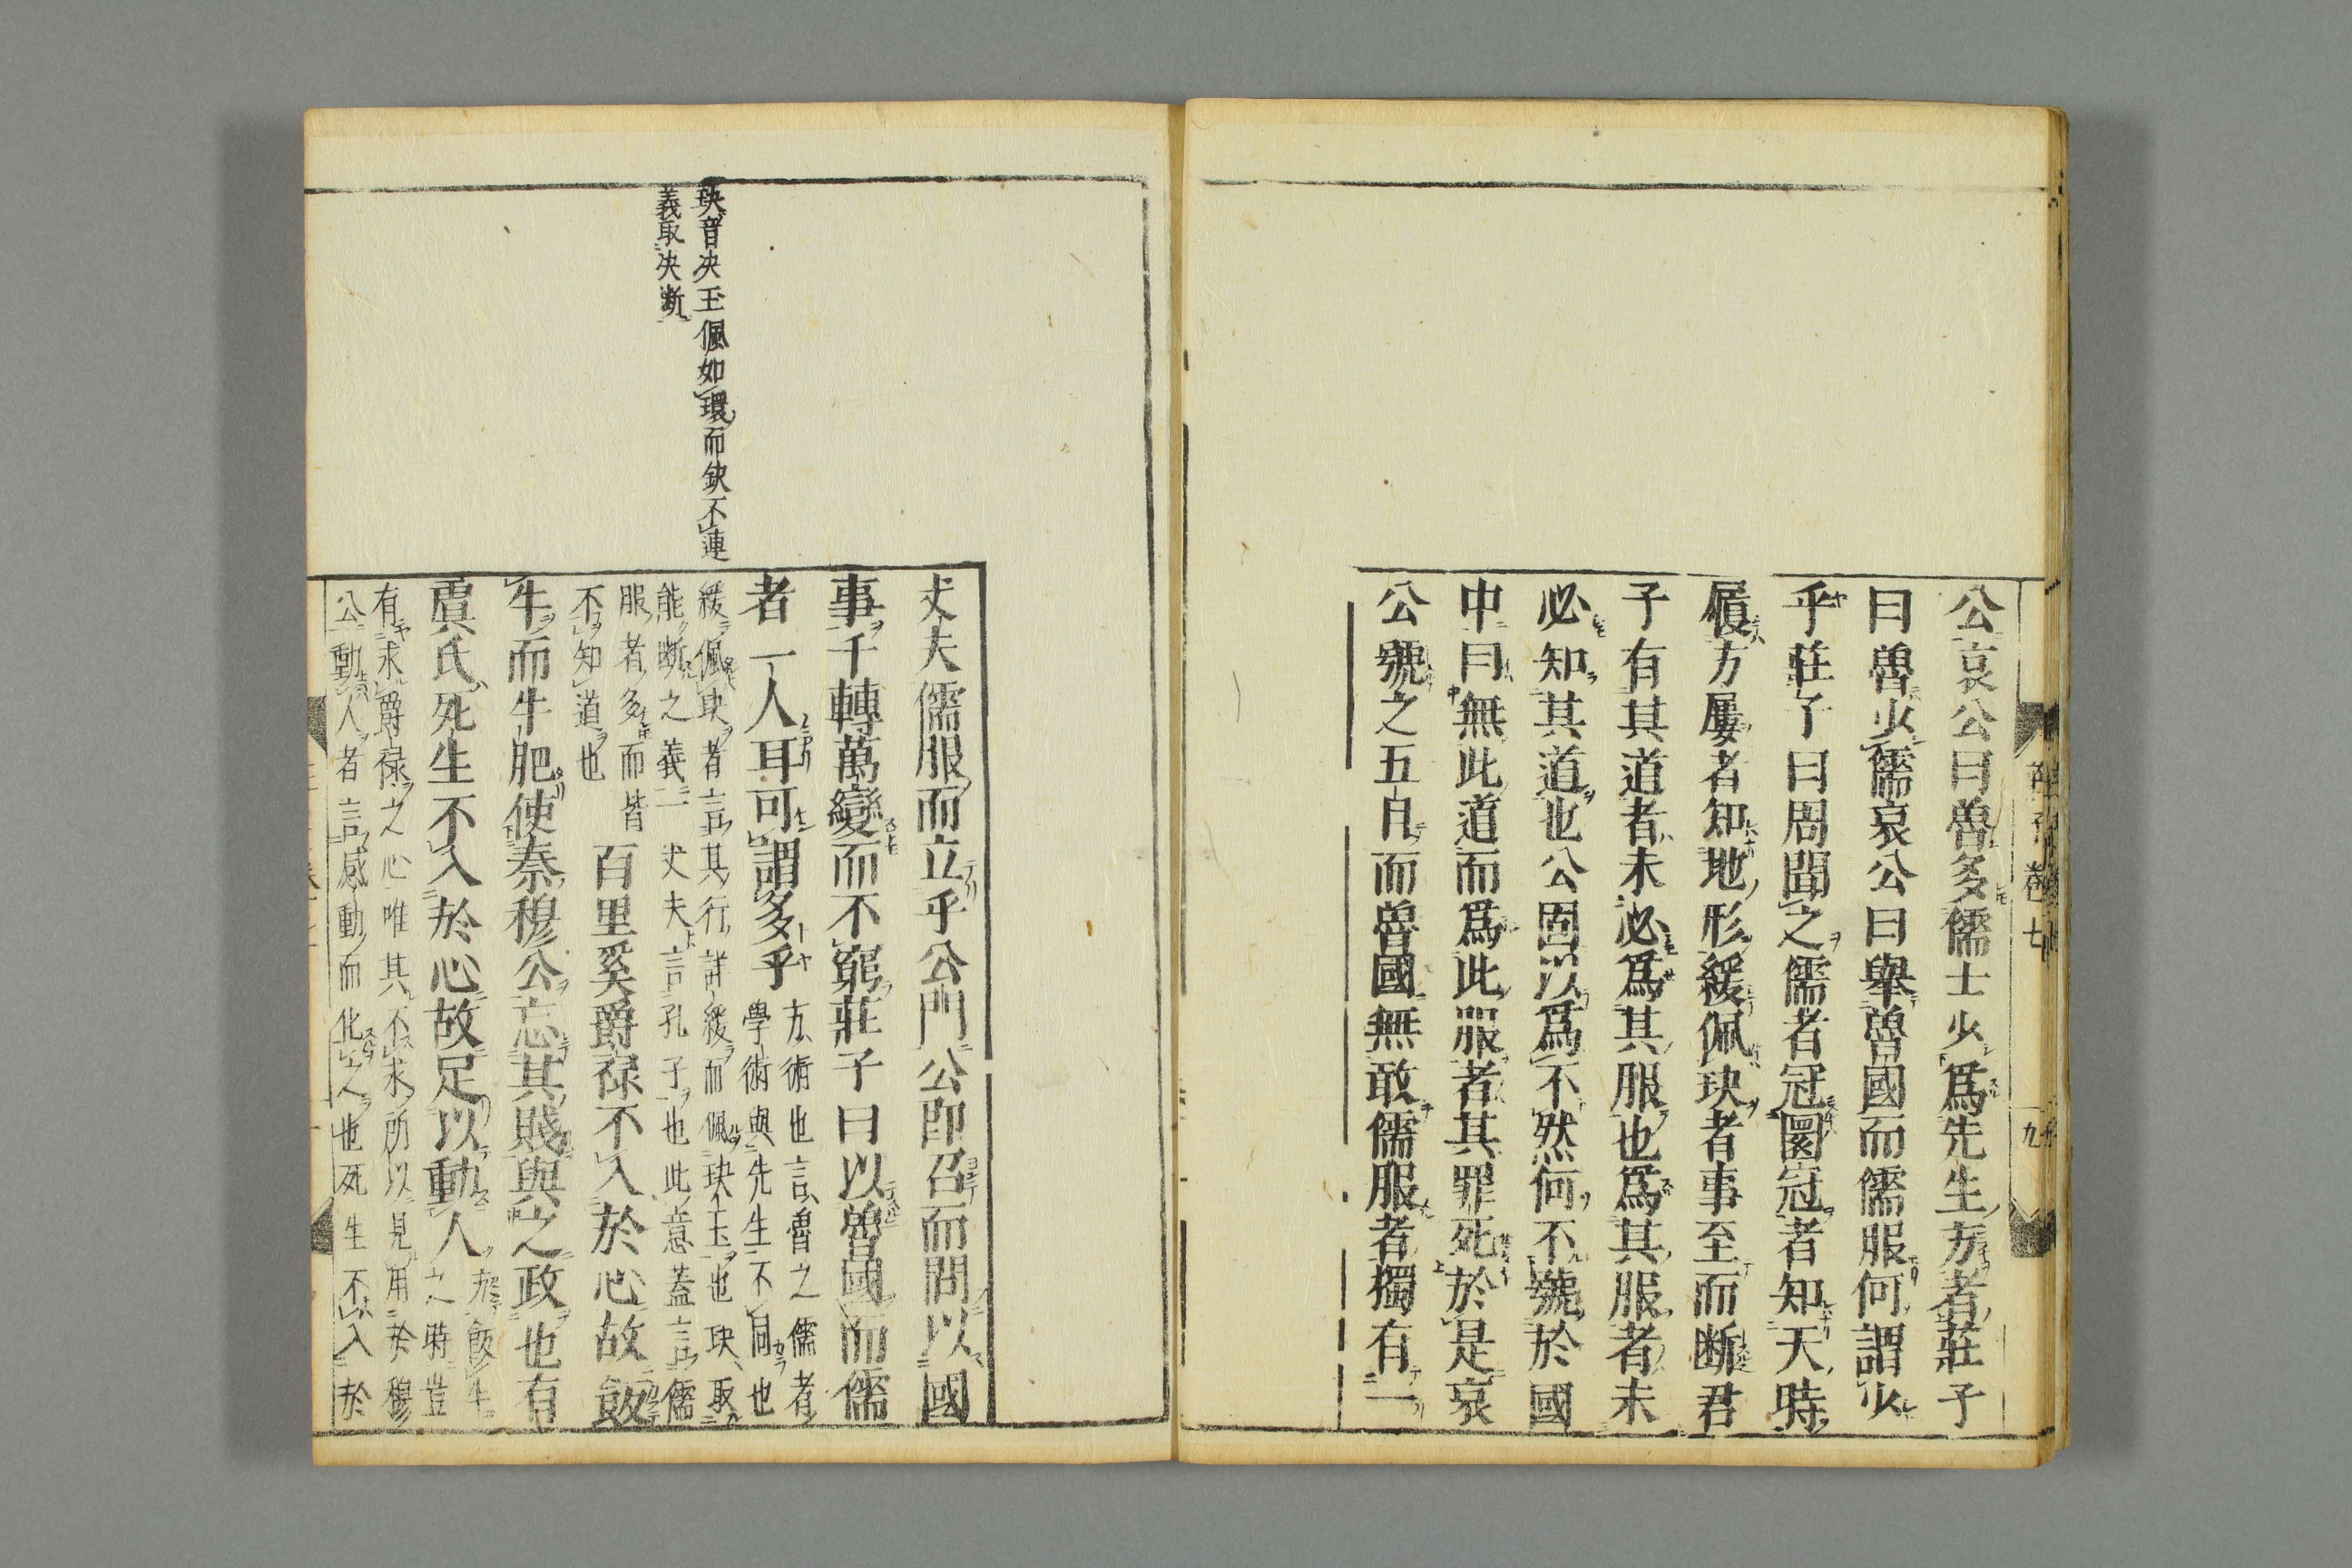 公哀公曰魯多儒士少爲先生方者莊子
曰魯少儒哀公曰舉魯國而儒服何謂少
乎莊子曰周聞之儒者冠圜冠者知天時
履方屨者知地形緩佩玦者事至而斷君
子有其道者未必爲其服也爲其服者未
必知其道也公固以爲不然何不號於國
中曰無此道而爲此服者其罪死於是哀
公號之五日而魯國無敢儒服者獨有一
玦音决玉佩如環而缺不連
義取决断
丈夫儒服而立乎公門公即召而問以國
事千轉萬變而不窮莊子曰以魯國而儒
者一人耳可謂多乎
方術也言魯之儒者
學術與先生不同也
緩佩玦者言其行詳緩而佩玦玉也玦取
能断之義一丈夫言孔子也此意蓋言儒
服者多而皆
不知道也
百里奚爵禄不入於心故飯
牛而牛肥使秦穆公忘其賤與之政也有
虞氏死生不入於心故足以動人
方飯牛
之時豈
有求爵禄之心唯其不求所以見用於穆
公動人者言感動而化之也死生不入於